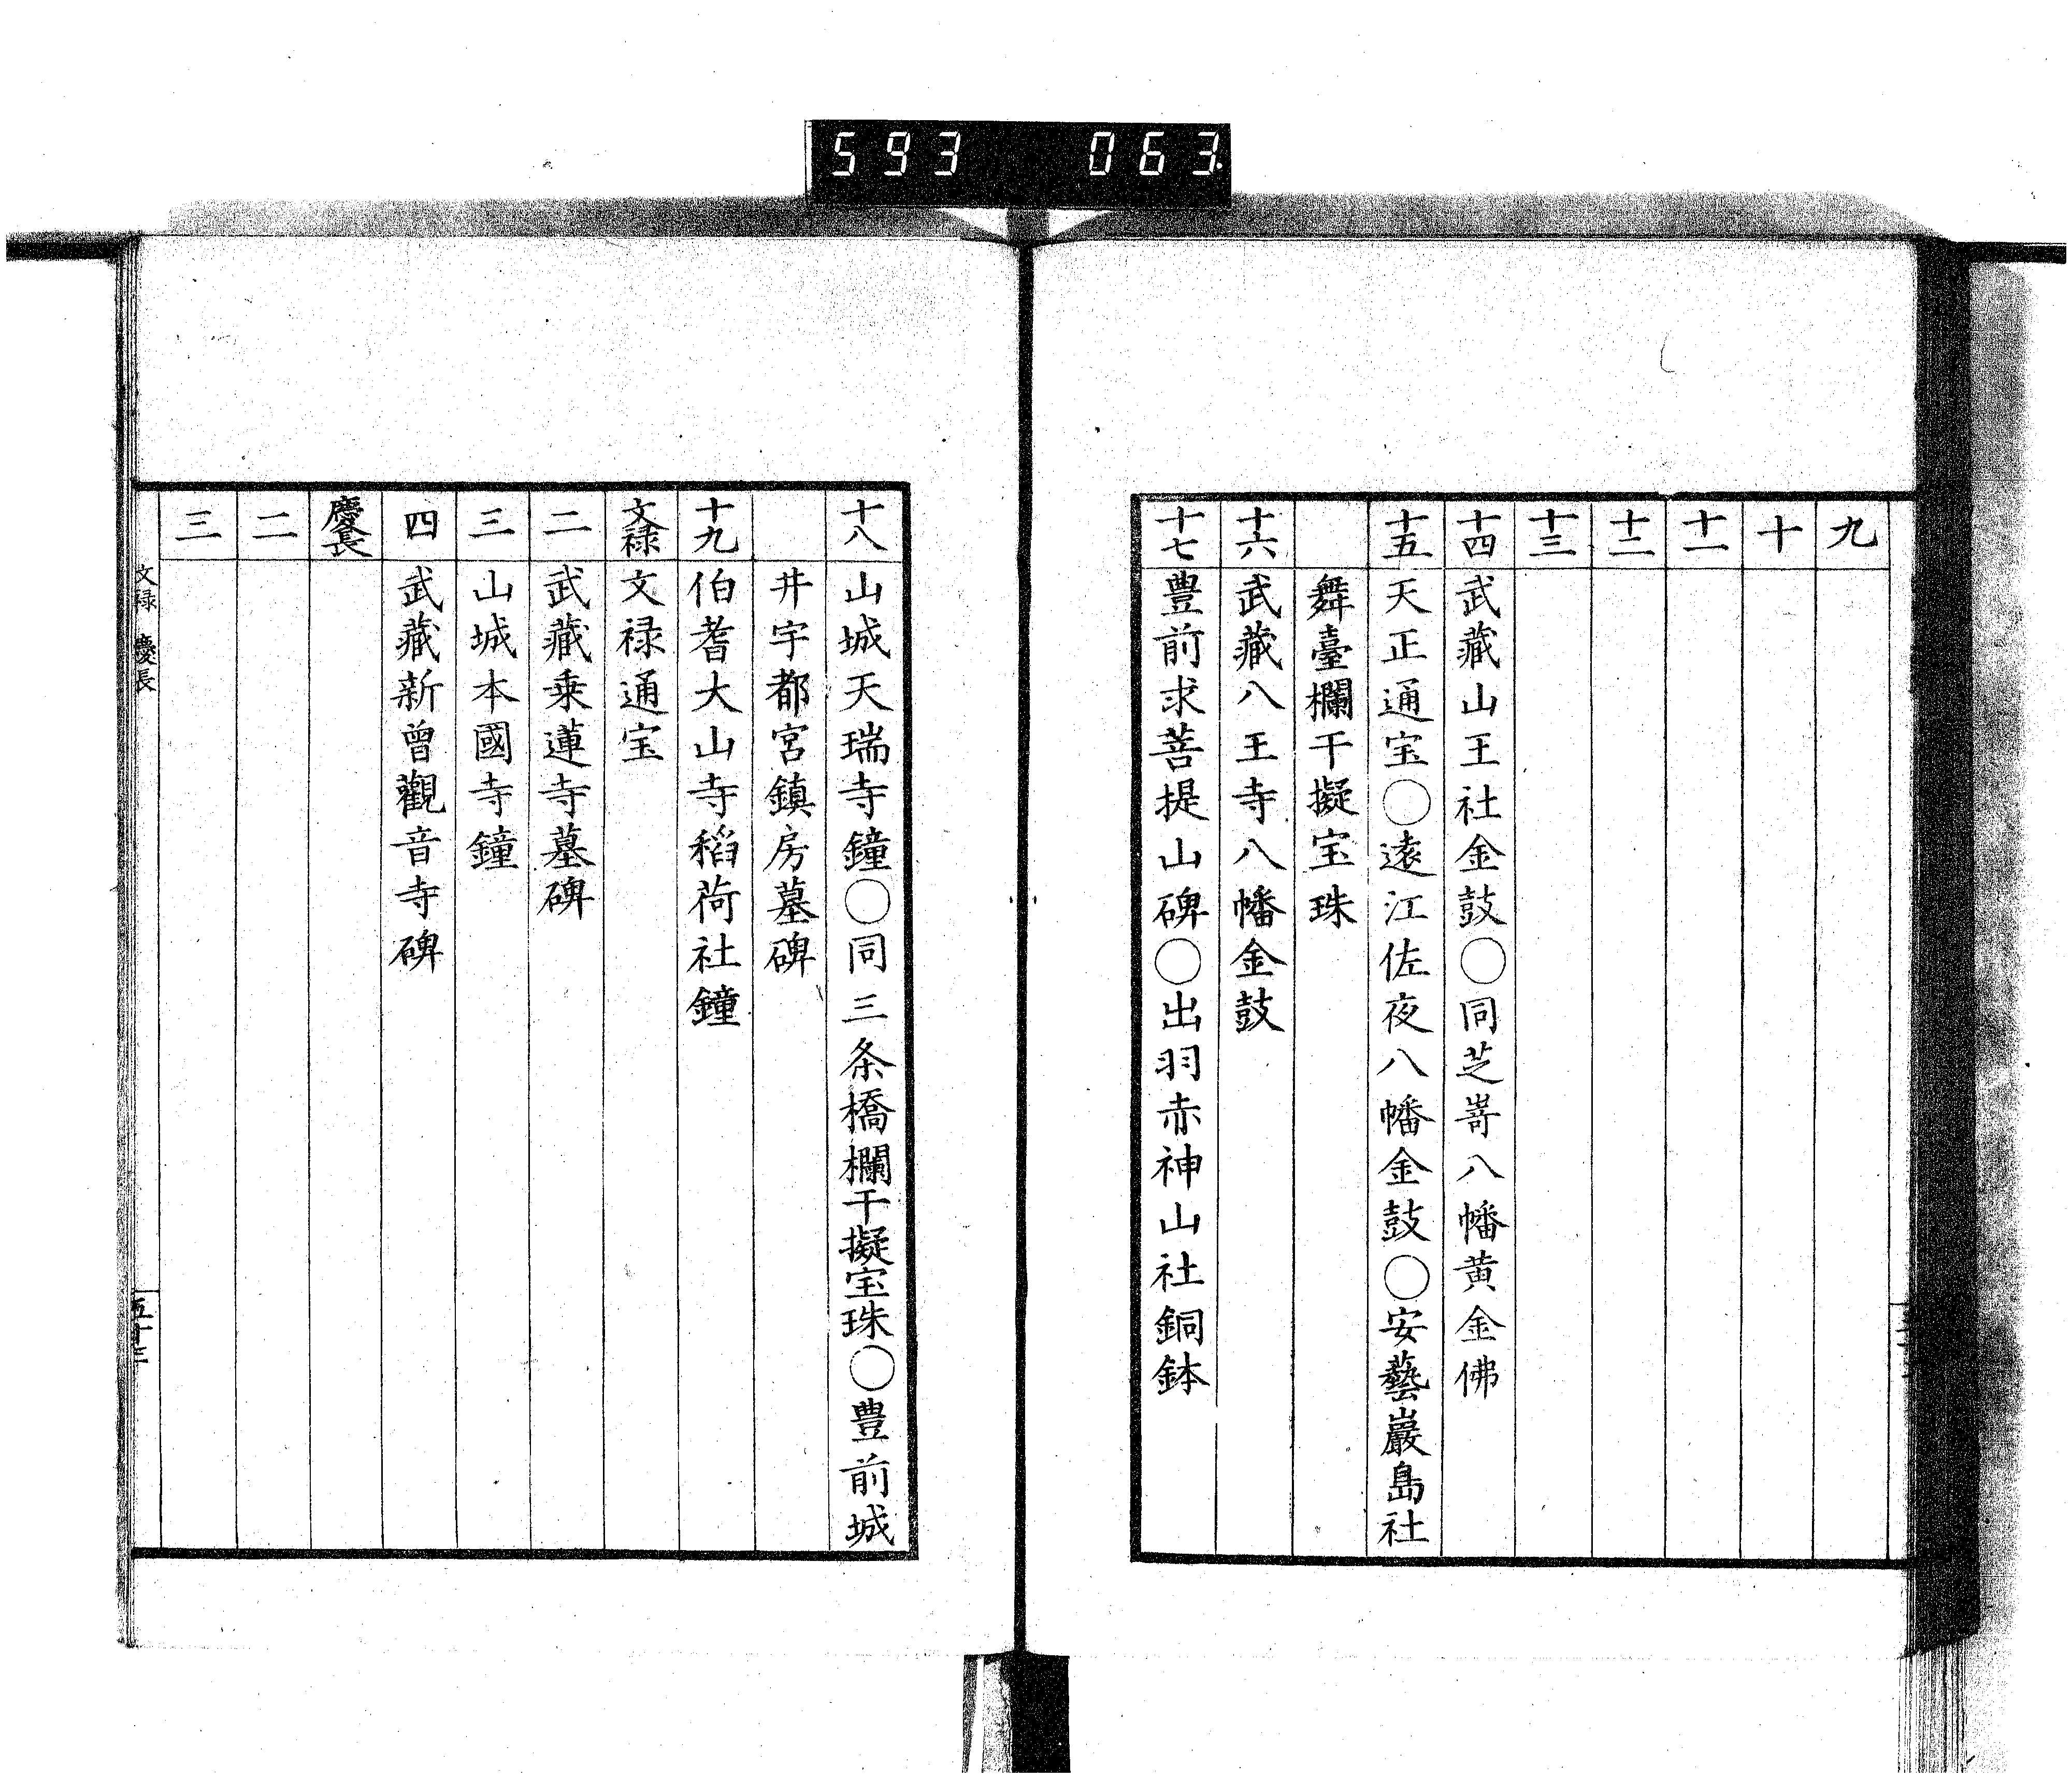 593 063
九
十
十一
十二
十三
十四 武藏山王社金鼓〇同芝嵜八幡黄金佛
十五 天正通宝〇遠江佐夜八幡金鼓〇安藝巖島社
舞臺欄干擬宝珠
十六 武藏八王寺八幡金鼓
十七 豊前求菩提山碑〇出羽赤神山社銅鉢
十八 山城天瑞寺鐘〇同三条橋欄干擬宝珠〇豊前城
井宇都宮鎮房墓碑
十九 伯耆大山寺稻荷社鐘
文禄 文禄通宝
二 武藏乗蓮寺墓碑
三 山城本國寺鐘
四 武藏新曾觀音寺碑
慶長
二
三
文禄 慶長
五十三